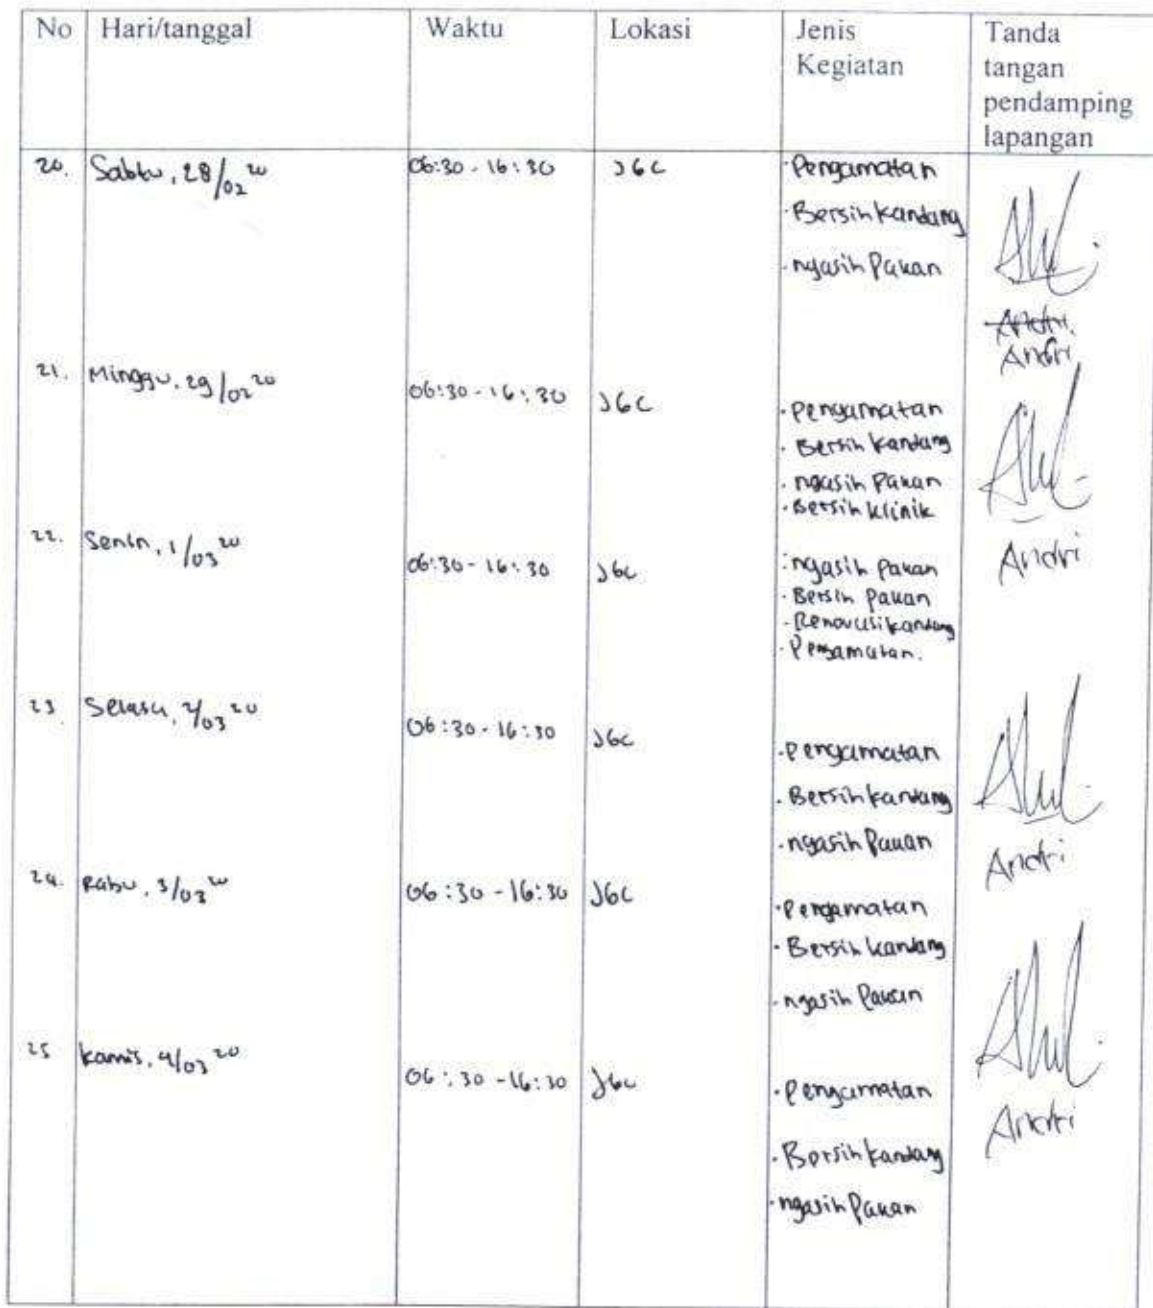 No Hari/tanggal Waktu Lokasi Jenis Kegiatan Tanda tangan pendamping lapangan
20. Sabtu, 28/02 20 06:30 - 16:30 J6C
· Pengamatan
· Bersih kandang
· ngasih Pakan
Andri.
Andri
21. Minggu, 29/02 20 06:30 - 16:30 J6C
· Pengamatan
· Bersih kandang
· ngasih Pakan
· Bersih klinik
22. Senin, 1/03 20 06:30 - 16:30 J6C
Andri
· ngasih Pakan
· Bersih Pakan
· Renovasi kandang
· Pengamatan.
23. Selasa, 2/03 20 06:30 - 16:30 J6C
· Pengamatan
· Bersih kandang
· ngasih Pakan
Andri
24. Rabu, 3/03 20 06:30 - 16:30 J6C
· Pengamatan
· Bersih kandang
· ngasih Pakan
25 Kamis, 4/03 20 06:30 - 16:30 J6C
· Pengamatan
Andri
· Bersih kandang
· ngasih Pakan